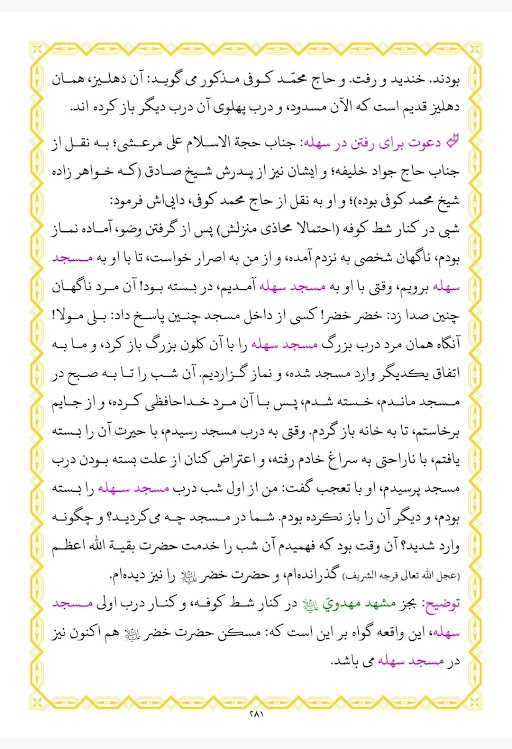 بودند. خندید و رفت. و حاج محمّد کوفی مذکور می گوید: آن دهلیز، همان
دهلیز قدیم است که الآن مسدود، و درب پهلوی آن درب دیگر باز کرده اند.
دعوت برای رفتن در سهله: جناب حجة الاسلام علی مرعشی؛ به نقل از
جناب حاج جواد خلیفه؛ و ایشان نیز از پدرش شیخ صادق (که خواهر زاده
شیخ محمد کوفی بوده)؛ و او به نقل از حاج محمد کوفی، دایی‌اش فرمود:
شبی در کنار شط کوفه (احتمالا محاذی منزلش) پس از گرفتن وضو، آماده نماز
بودم، ناگهان شخصی به نزدم آمده، و از من به اصرار خواست، تا با او به مسجد
سهله برویم، وقتی با او به مسجد سهله آمدیم، در بسته بود! آن مرد ناگهان
چنین صدا زد: خضر خضر! کسی از داخل مسجد چنین پاسخ داد: بلی مولا!
آنگاه همان مرد درب بزرگ مسجد سهله را با آن کلون بزرگ باز کرد، و ما به
اتفاق یکدیگر وارد مسجد شده، و نماز گزاردیم. آن شب را تا به صبح در
مسجد ماندم، خسته شدم، پس با آن مرد خداحافظی کرده، و از جایم
برخاستم، تا به خانه باز گردم. وقتی به درب مسجد رسیدم، با حیرت آن را بسته
یافتم، با ناراحتی به سراغ خادم رفته، و اعتراض کنان از علت بسته بودن درب
مسجد پرسیدم، او با تعجب گفت: من از اول شب درب مسجد سهله را بسته
بودم، و دیگر آن را باز نکرده بودم. شما در مسجد چه می‌کردید؟ و چگونه
وارد شدید؟ آن وقت بود که فهمیدم آن شب را خدمت حضرت بقیة الله اعظم
(عجل الله تعالی فرجه الشریف) گذرانده‌ام، و حضرت خضر را نیز دیده‌ام.
توضیح: بجز مشهد مهدویّ در کنار شط کوفه، و کنار درب اولی مسجد
سهله، این واقعه گواه بر این است که: مسکن حضرت خضر هم اکنون نیز
در مسجد سهله می باشد.
۲۸۱